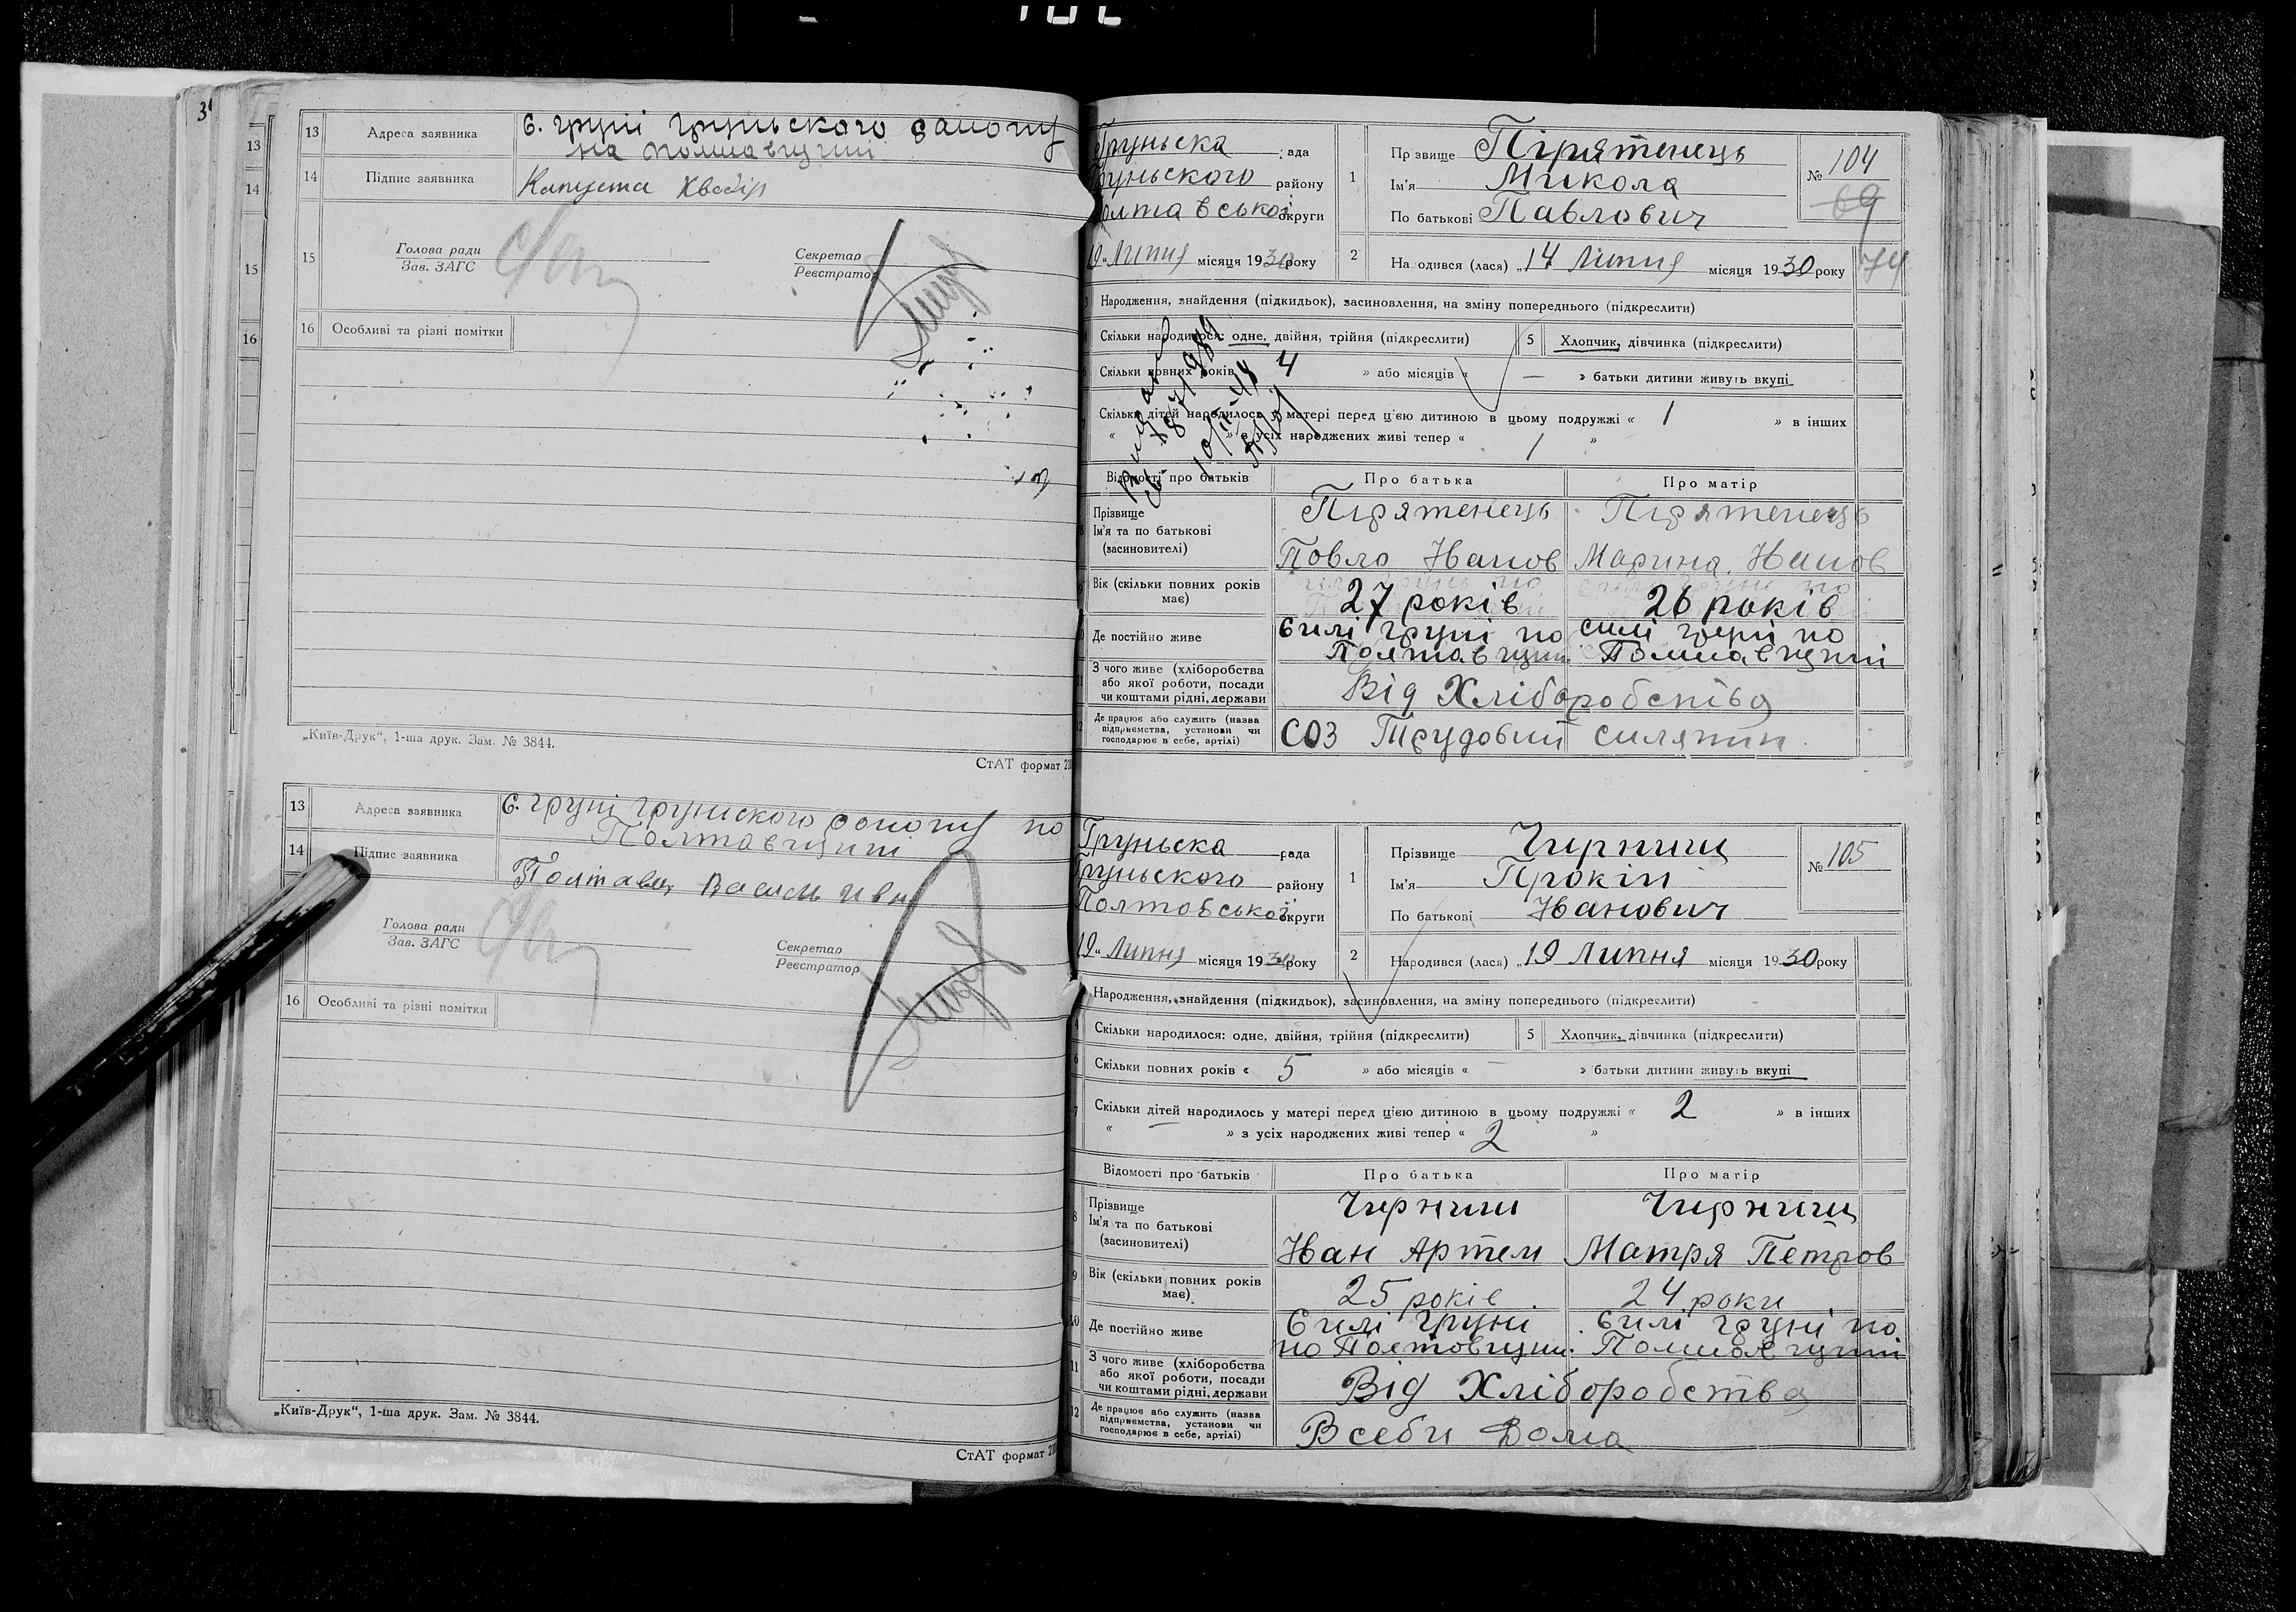 3
13
14
15
16
13 Адреса заявника с. груні груньского району
на полтавщині
14 Підпис заявника Капуста
15 Голова ради
Зав. ЗАГС
Секретар
Реєстратор
16 Особливі та різні помітки
„Київ-Друк“, 1-ша друк. Зам. № 3844.
СтАТ формат
13 Адреса заявника с. груні груньского району по
Полтавщині
14 Підпис заявника Полтавец Василь Иван
Голова ради
Зав. ЗАГС
Секретар
Реєстратор
16 Особливі та різні помітки
„Київ-Друк“, 1-ша друк. Зам. № 3844.
СтАТ формат
Груньска рада
Груньского району
Полтавської округи
19 „Липня місяця 1930 року
1 Прізвище Пірятенець
Ім'я Микола
По батькові Павлович
№ 104
69
74
2 Народився (лася) „14 Липня місяця 1930 року
3 Народження, знайдення (підкидьок), засиновлення, на зміну попереднього (підкреслити)
4 Скільки народилося: одне, двійня, трійня (підкреслити) 5 Хлопчик, дівчинка (підкреслити)
6 Скільки повних років 4 » або місяців « — » батьки дитини живуть вкупі
7 Скільки дітей народилось у матері перед цією дитиною в цьому подружжі « 1 » в інших
« » з усіх народжених живі тепер « 1 »
Відомості про батьків Про батька Про матір
8 Прізвище Пірятенець Пірятенець
Ім'я та по батькові
(засиновителі) Повло Иванов Марина Иванов
9 Вік (скільки повних років
має) 27 років 26 років
10 Де постійно живе Силі груні по силі груні по
Полтавщині Полтавщині
11 З чого живе (хліборобства
або якої роботи, посади
чи коштами рідні, держави Від Хліборобства
12 Де працює або служить (назва
підприємства, установи чи
господарює в себе, артілі) СОЗ Трудовий силянин
Груньска рада
Груньского району
Полтовської округи
19 „Липня місяця 1930 року
1 Прізвище Чирниш
Ім'я Прокіп
По батькові Иванович
№ 105
2 Народився (лася) „19 Липня місяця 1930 року
Народження, знайдення (підкидьок), засиновлення, на зміну попереднього (підкреслити)
4 Скільки народилося: одне, двійня, трійня (підкреслити) 5 Хлопчик, дівчинка (підкреслити)
6 Скільки повних років « 5 » або місяців « — » батьки дитини живуть вкупі
7 Скільки дітей народилось у матері перед цією дитиною в цьому подружжі « 2 » в інших
« — » з усіх народжених живі тепер « 2 »
Відомості про батьків Про батька Про матір
8 Прізвище Чирниш Чирниш
Ім'я та по батькові
(засиновителі) Иван Артем Матря Петров
9 Вік (скільки повних років
має) 25 років 24 роки
10 Де постійно живе Силі Груни Силі груні по
по Полтовщині Полтовщині
11 З чого живе (хліборобства
або якої роботи, посади
чи коштами рідні, держави Від Хліборобства
12 Де працює або служить (назва
підприємства, установи чи
господарює в себе, артілі) Всеби Дома